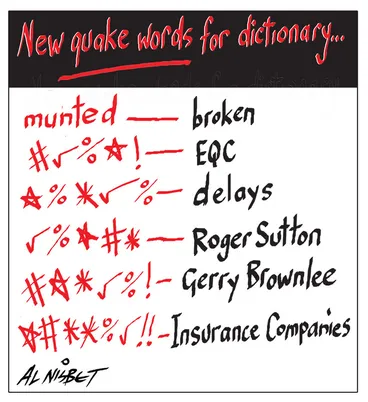 New quake words for dictionary...
munted — broken
#√%☆!— EQC
☆%*√%— delays
√%☆#*— Roger Sutton
#☆*√%!— Gerry Brownlee
☆#**%√!!- Insurance Companies
AL NISBET